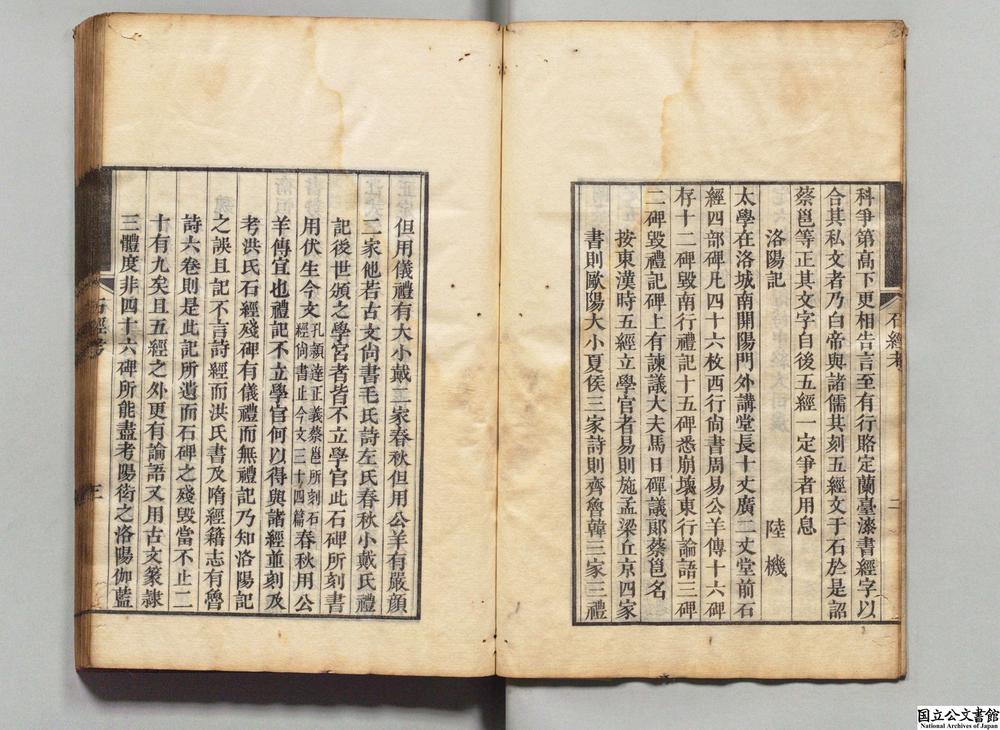 科爭第高下更相告言至有行賂定蘭臺漆書經字以
合其私文者乃白帝與諸儒共刻五經文于石於是詔
蔡邕等正其文字自後五經一定爭者用息
洛陽記 陸機
太學在洛城南開陽門外講堂長十丈廣二丈堂前石
經四部碑凡四十六枚西行尙書周易公羊傳十六碑
存十二碑毀南行禮記十五碑悉崩壞東行論語三碑
二碑毀禮記碑上有諫議大夫馬日磾議郞蔡邕名
按東漢時五經立學官者易則施孟梁丘京四家
書則歐陽大小夏侯三家詩則齊魯韓三家三禮
石經考
二
但用儀禮有大小戴二家春秋但用公羊有嚴顔
二家他若古文尙書毛氏詩左氏春秋小戴氏禮
記後世頒之學宮者皆不立學官此石碑所刻書
用伏生今文孔穎達正義蔡邕所刻石經尙書止今文三十四篇春秋用公
羊傳宜也禮記不立學官何以得與諸經並刻及
考洪氏石經殘碑有儀禮而無禮記乃知洛陽記
之誤且記不言詩經而洪氏書及隋經籍志有魯
詩六卷則是此記所遺而石碑之殘毀當不止二
十有九矣且五經之外更有論語又用古文篆隸
三體度非四十六碑所能盡考陽衒之洛陽伽藍
石經考
三
国立公文書館
National Archives of Japan